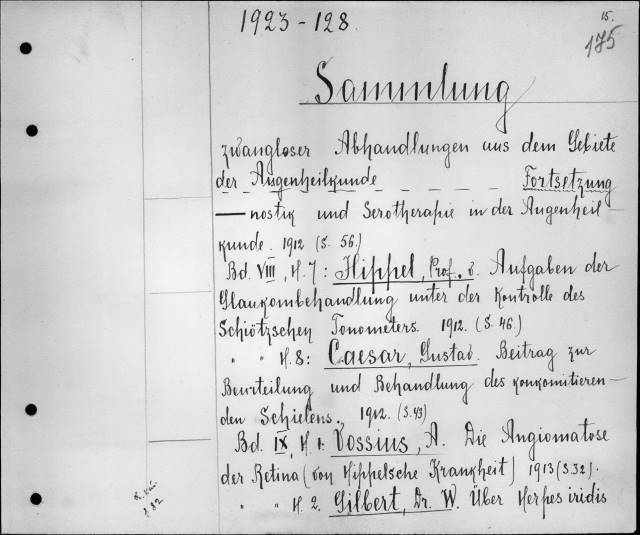 1923-128.
15.
175
Sammlung
zwangloser Abhandlungen aus dem Gebiete
der Augenheilkunde _ _ _ _ _ Fortsetzung
— nostik und Serotherapie in der Augenheil-
kunde. 1912 (S. 56.)
Bd. VIII, H. 7: Hippel, Prof. v. Aufgaben der
Glaukombehandlung unter der Kontrolle des
Schiötzschen Tonometers. 1912. (S. 46.)
" " H. 8: Caesar, Gustav. Beitrag zur
Beurteilung und Behandlung des konkomitieren-
den Schielens. 1912. (S. 43)
Bd. IX, H. 1. Vossius, A. Die Angiomatose
der Retina (von Hippelsche Krankheit) 1913 (S 32).
" " H. 2. Gilbert, Dr. W. Über Herpes iridis